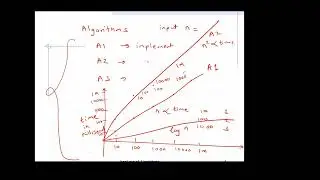 Algorithms input n =
A1 → implement A2
A2 → " n² ∝ time
A3 → 1m
10000 1000 A1
100 100
10 10
1m
10000
1000
100
time in
n ∝ time 10 1
100 2
log n 1000 3
10 100 1000 10000 1m